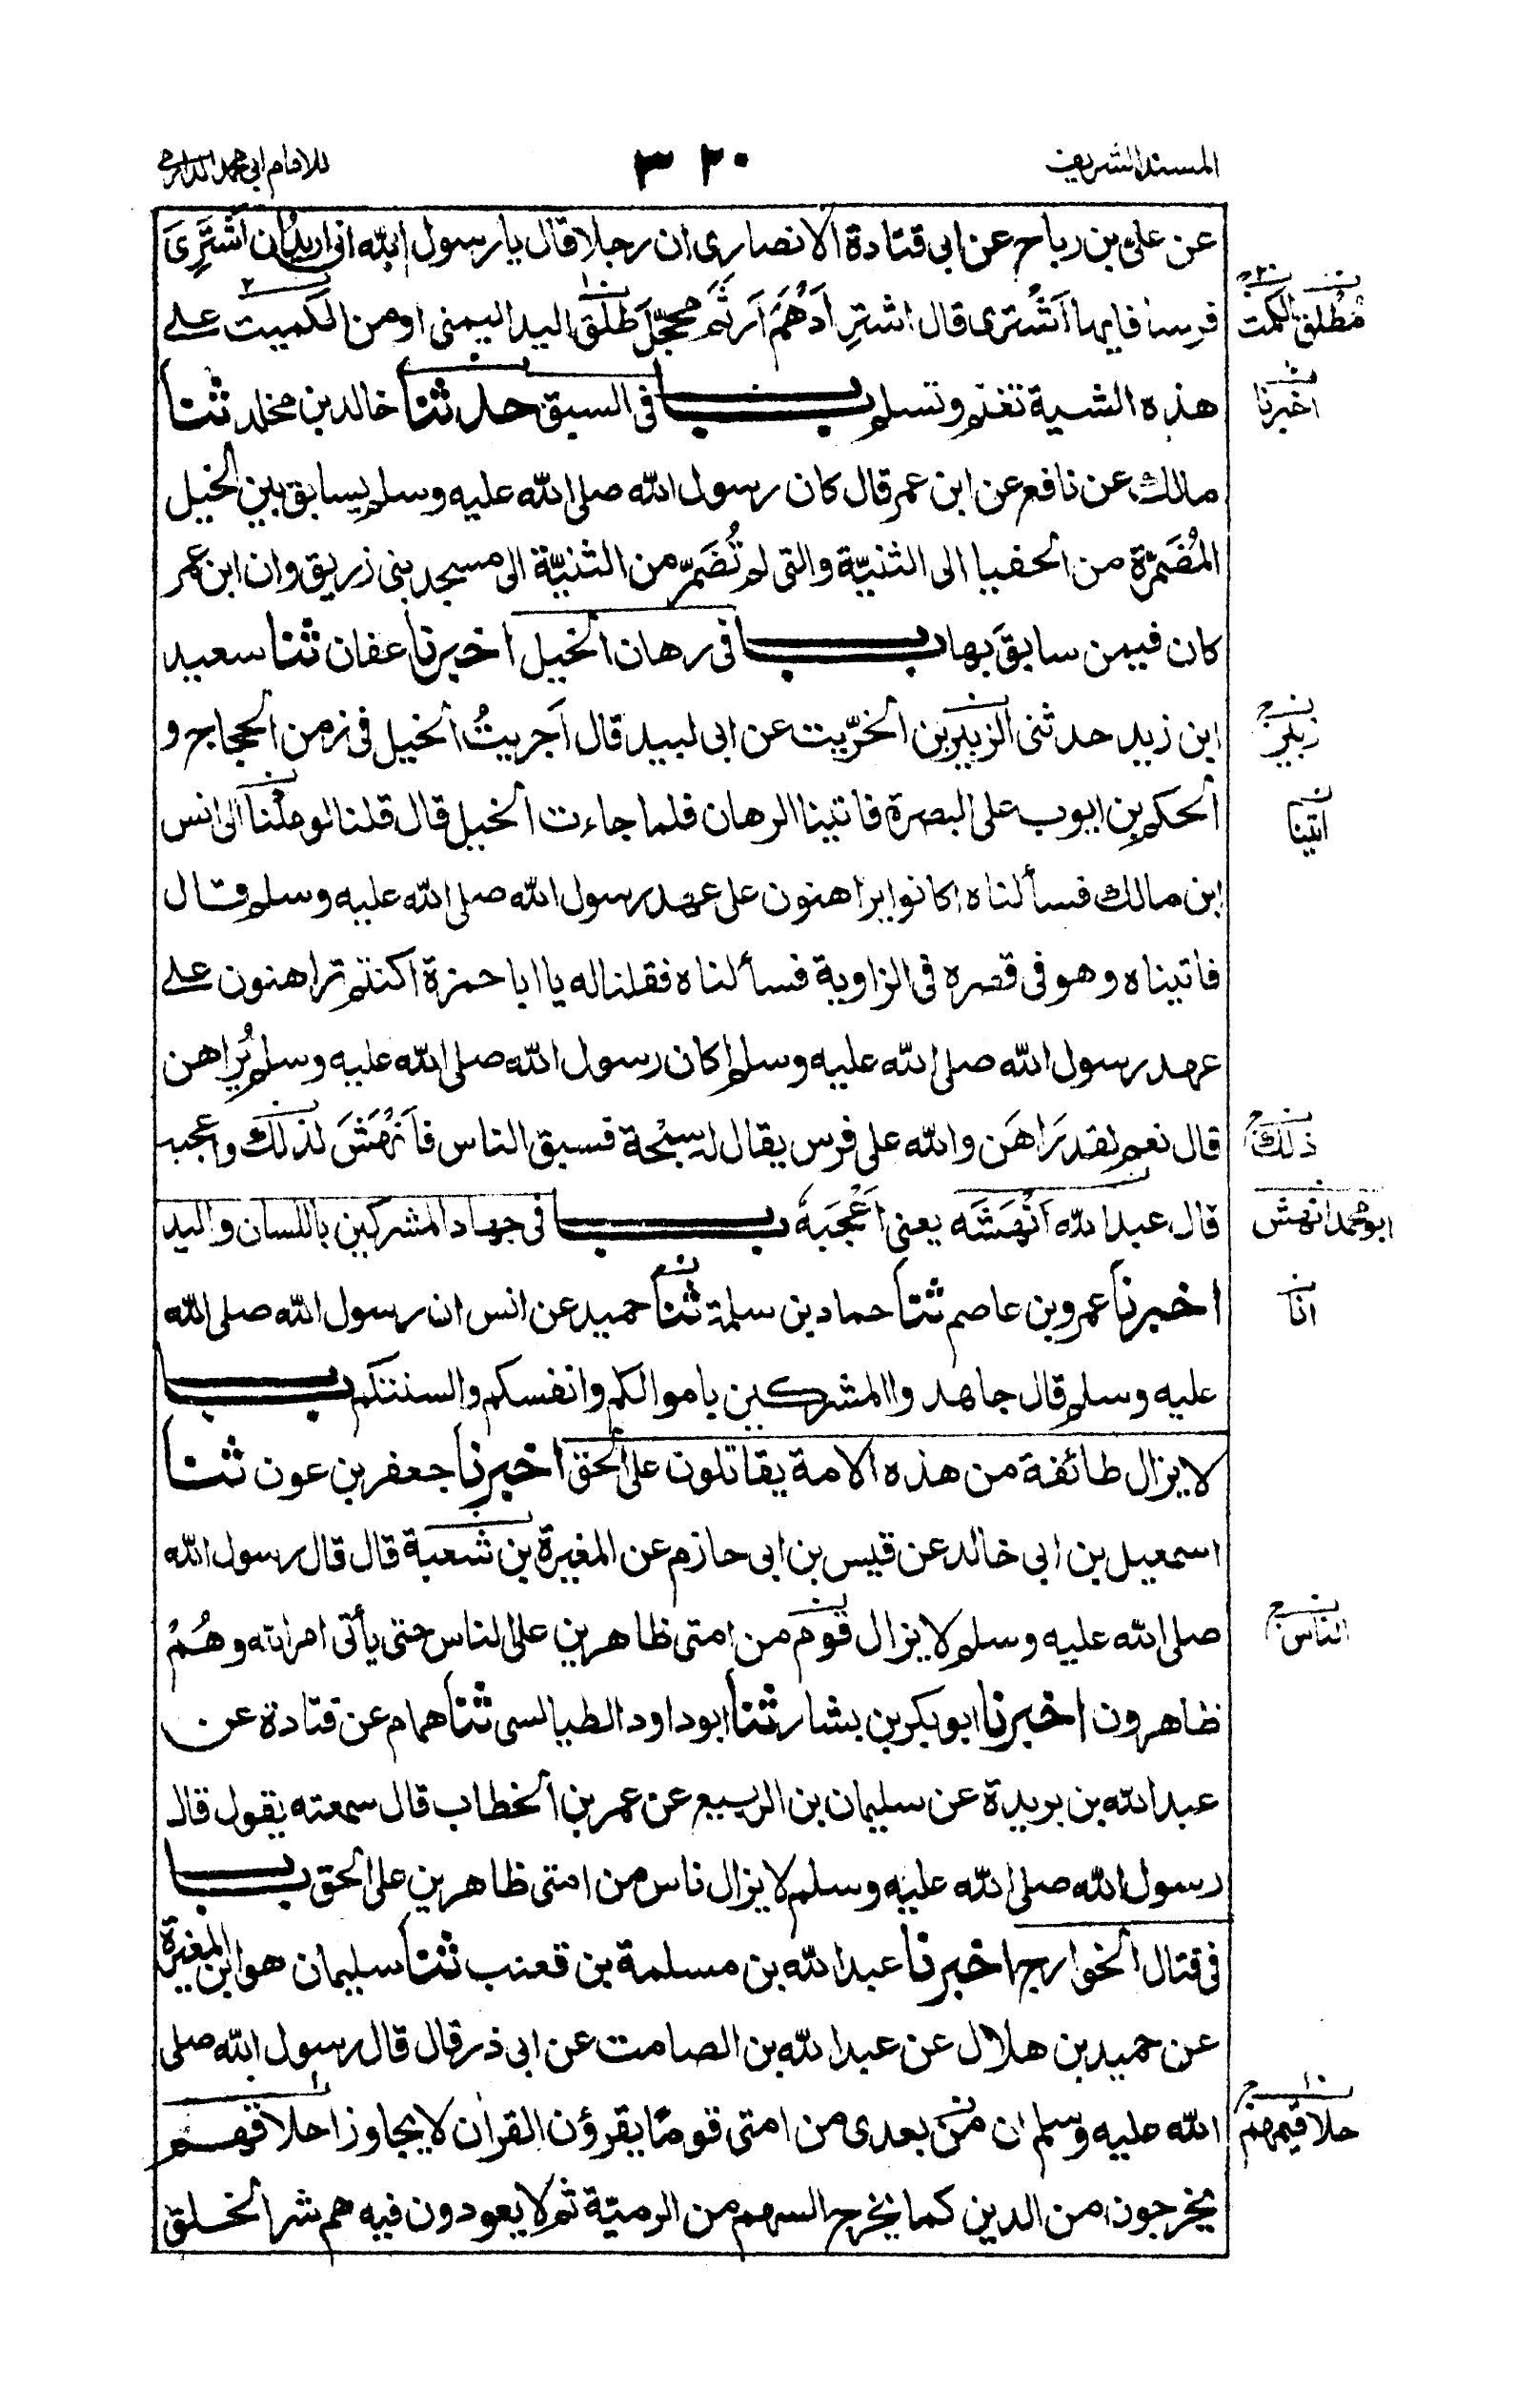 المسند الشريف
٣٢٠
للامام ابی محمد الدارمی
عن علیّ بن رباح عن ابی قتادة الانصاری ان رجلا قال یا رسول الله انی ارید ان اَشْتَرِیَ
فرسا فایها اَشْتری قال اشترِ اَدْهَمَ اَرثَمَ محجّلَ طَلْقَ الید الیمنی او من الکمیت علے
مُطْلَق الکمت
هذه الشیة تغنم وتسلم بــــاب فی السبق حدثنا خالد بن مخلد ثنا
اخبرنا
مالك عن نافع عن ابن عمر قال کان رسول الله صلی الله علیه وسلم یسابق بین الخیل
المُضَمَّرَة من الحفیا الی الثنیّة والتی لم تُضَمَّر من الثنیّة الی مسجد بنی زریق وان ابن عمر
کان فیمن سابقَ بها بــــاب فی رهان الخیل اخبرنا عفان ثنا سعید
ابن زید حدثنی الزبیر بن الخرّیت عن ابی لبید قال اَجریتُ الخیل فی زمن الحجاج و
زبیر
الحکم بن ایوب علی البصرة فاتینا الرهان فلما جاءت الخیل قال قلنا لو مِلْنا الی انس
اتینا
ابن مالك فسألناه اکانوا یراهنون علی عهد رسول الله صلی الله علیه وسلم قال
فاتیناه وهو فی قصره فی الزاویة فسألناه فقلنا له یا ابا حمزة اکنتم تراهنون علے
عهد رسول الله صلی الله علیه وسلم اکان رسول الله صلی الله علیه وسلم یُراهن
قال نعم لقد رَاهَن والله علی فرس یقال له سبْحة فسبق الناس فاَنْهَشَ لذلك واعجبه
ذلك
قال عبد الله اَنْهَشَه یعنی اَعْجَبَهٗ بــــاب فی جهاد المشرکین باللسان والید
ابو محمد انهش
اخبرنا عمرو بن عاصم ثنا حماد بن سلمة ثنا حمید عن انس ان رسول الله صلی الله
انا
علیه وسلم قال جاهدوا المشرکین باموالکم وانفسکم والسنتکم بــــاب
لا یزال طائفة من هذه الامة یقاتلون علی الحق اخبرنا جعفر بن عون ثنا
اسمعیل بن ابی خالد عن قیس بن ابی حازم عن المغیرة بن شعبة قال قال رسول الله
صلی الله علیه وسلم لا یزال قوم من امتی ظاهرین علی الناس حتی یأتی امر الله وهُمْ
الناس
ظاهرون اخبرنا ابو بکر بن بشار ثنا ابو داود الطیالسی ثنا همام عن قتادة عن
عبد الله بن بریدة عن سلیمان بن الربیع عن عمر بن الخطاب قال سمعته یقول قال
رسول الله صلی الله علیه وسلم لا یزال ناس من امتی ظاهرین علی الحق بــــاب
فی قتال الخوارج اخبرنا عبد الله بن مسلمة بن قعنب ثنا سلیمان هو ابن المغیرة
عن حمید بن هلال عن عبد الله بن الصامت عن ابی ذر قال قال رسول الله صلی
الله علیه وسلم ان من بعدی من امتی قومًا یقرؤن القراٰن لا یجاوز احلاقهم
حلاقیمهم
یخرجون من الدین کما یخرج السهم من الرمیّة ثم لا یعودون فیه هم شر الخلق